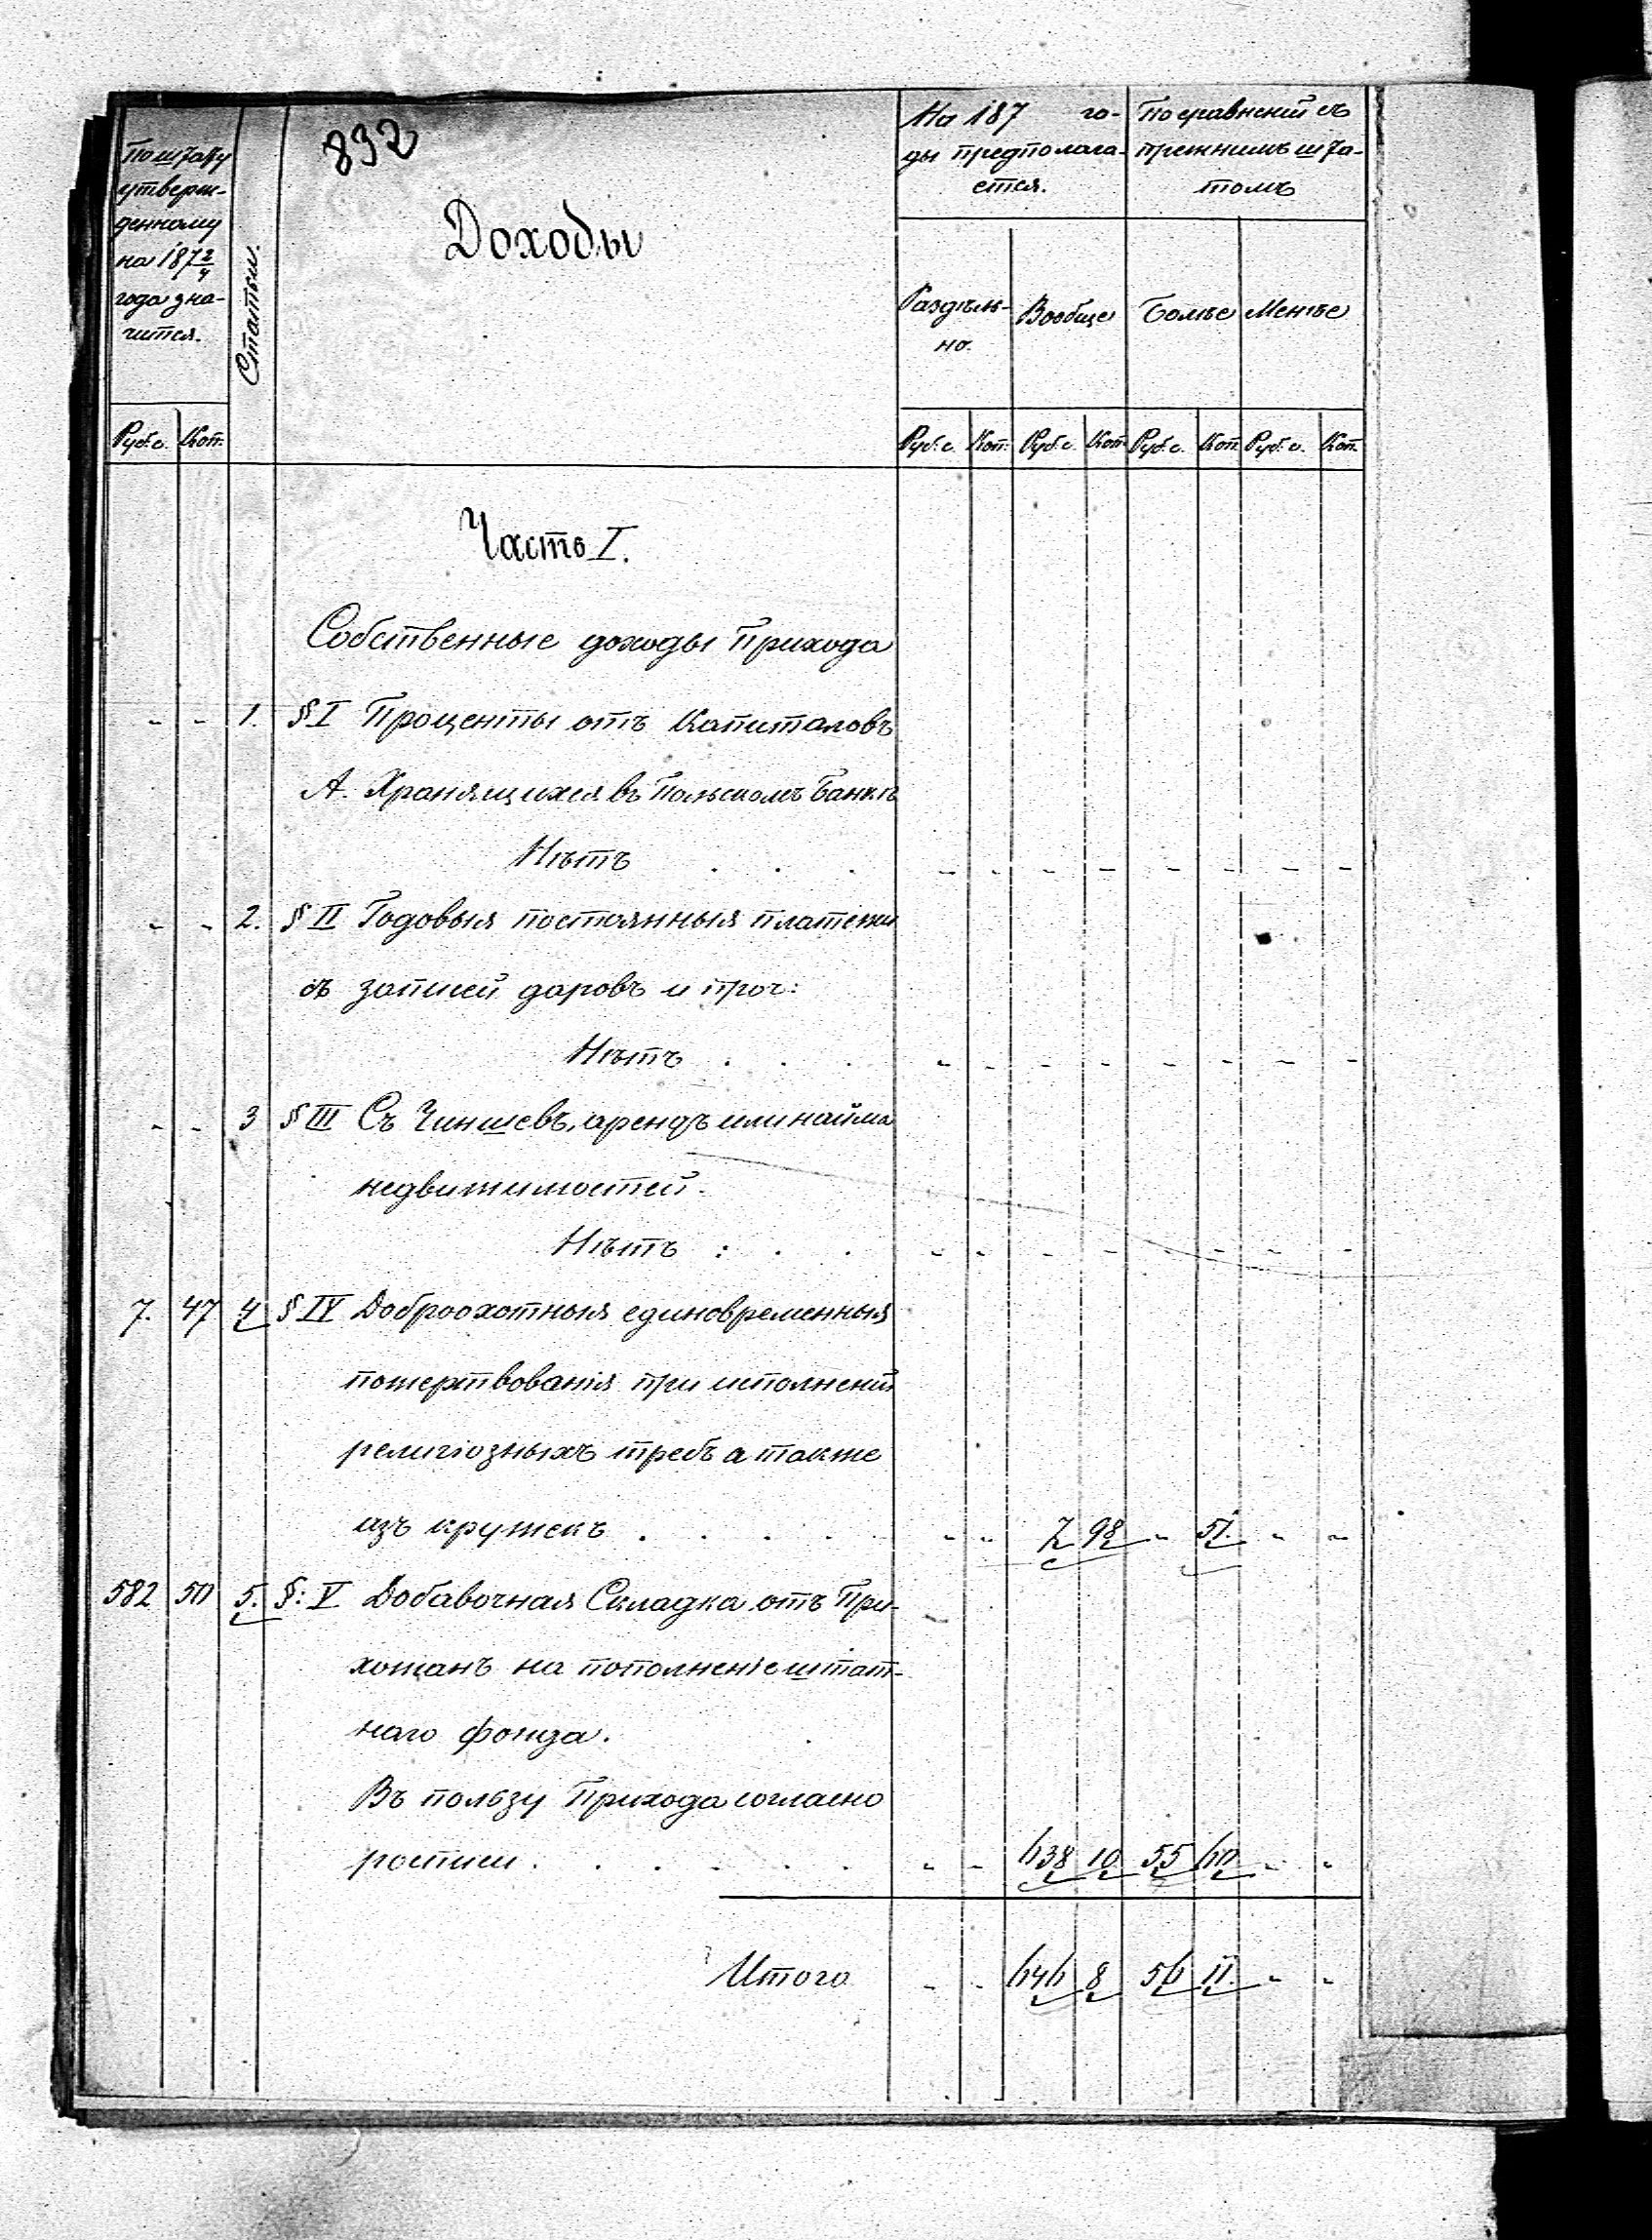 832
По штату
утверж-
денному
на 187 2/4
года зна-
чится.
Статьи.
Доходы
На 187 го-
ды предполага-
ется.
По сравненіи съ
прежнимъ шта-
томъ
Раздѣль-
но.
Вообще
Болѣе
Менѣе
Руб. с. Коп. Руб. с. Коп. Руб. с. Коп. Руб. с. Коп. Руб. с. Коп.
Часть I.
Собственные доходы Прихода
- - 1. § I Проценты отъ Капиталовъ
А. Хранящихся въ Польскомъ Банкѣ
Нѣтъ . . . - - - - - - - -
- - 2. § II Годовыя постоянныя платежи
съ записей даровъ и проч:
Нѣтъ . . . - - - - - - - -
- - 3 § III Съ Чиншевъ, арендъ или найма
недвижимостей.
Нѣтъ : . . - - - - - - - -
7. 47 4 § IV Доброохотныя единовременныя
пожертвованія при исполненіи
религіозныхъ требъ а также
изъ кружекъ . . . . . - - 7 98 - 51. - -
582 50 5. §: V Добавочная Складка отъ При-
хожанъ на пополненіе штат-
наго фонда.
Въ пользу Прихода согласно
росписи . . . . . . - - 638 10 55 60 - -
Итого - - 646 8 56 11. - -